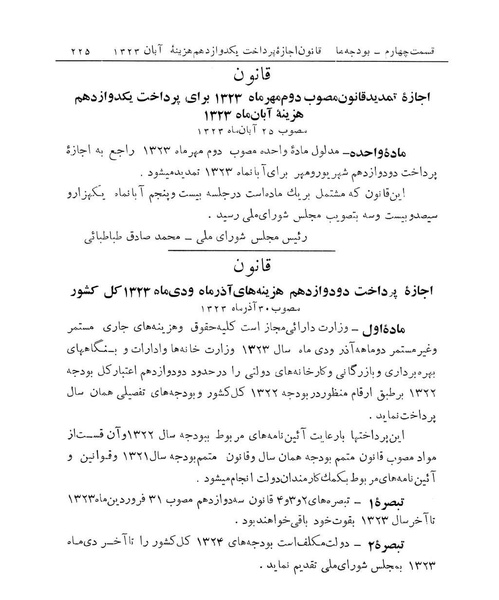 قسمت چهارم ـ بودجه‌ها قانون اجازهٔ پرداخت یکدوازدهم هزینهٔ آبان ۱۳۲۳ ۲۲۵
قانون
اجازهٔ تمدید قانون مصوب دوم مهرماه ۱۳۲۳ برای پرداخت یکدوازدهم
هزینهٔ آبان‌ماه ۱۳۲۳
مصوب ۲۵ آبان‌ماه ۱۳۲۳
مادهٔ واحده ـ مدلول مادهٔ واحده مصوب دوم مهرماه ۱۳۲۳ راجع به اجازهٔ
پرداخت دودوازدهم شهریورومهر برای آبانماه ۱۳۲۳ تمدید میشود .
این قانون که مشتمل بریك ماده‌است درجلسه بیست وپنجم آبانماه یکهزارو
سیصدو بیست وسه بتصویب مجلس شورای‌ملی رسید .
رئیس مجلس شورای ملی ـ محمد صادق طباطبائی
قانون
اجازهٔ پرداخت دودوازدهم هزینه‌های آذرماه ودی‌ماه ۱۳۲۳ کل کشور
مصوب ۳۰ آذرماه ۱۳۲۳
مادهٔ اول ـ وزارت دارائی مجاز است کلیه حقوق وهزینه‌های جاری مستمر
وغیر مستمر دوماهه آذر ودی ماه سال ۱۳۲۳ وزارت خانه‌ها وادارات و بنگاههای
بهره‌برداری و بازرگانی وکارخانه‌های دولتی را درحدود دودوازدهم اعتبارکل بودجه
۱۳۲۲ برطبق ارقام منظور در بودجه ۱۳۲۲ کل‌کشور و بودجه‌های تفصیلی همان سال
پرداخت نماید .
این پرداختها با رعایت آئین‌نامه‌های مربوط ببودجه سال ۱۳۲۲ وآن قسمت‌از
مواد مصوب قانون متمم بودجه همان سال وقانون متمم بودجه سال ۱۳۲۱ وقوانین و
آئین‌نامه‌های مربوط بکمك کارمندان دولت انجام میشود .
تبصرهٔ ۱ ـ تبصره‌های ۲و۳و۴ قانون سه‌دوازدهم مصوب ۳۱ فروردین‌ماه ۱۳۲۳
تا آخر سال ۱۳۲۳ بقوت خود باقی‌خواهند بود .
تبصرهٔ ۲ ـ دولت مکلف‌است بودجه‌های ۱۳۲۴ کل‌کشور را تا آخر دی‌ماه
۱۳۲۳ به‌مجلس شورای‌ملی تقدیم نماید .